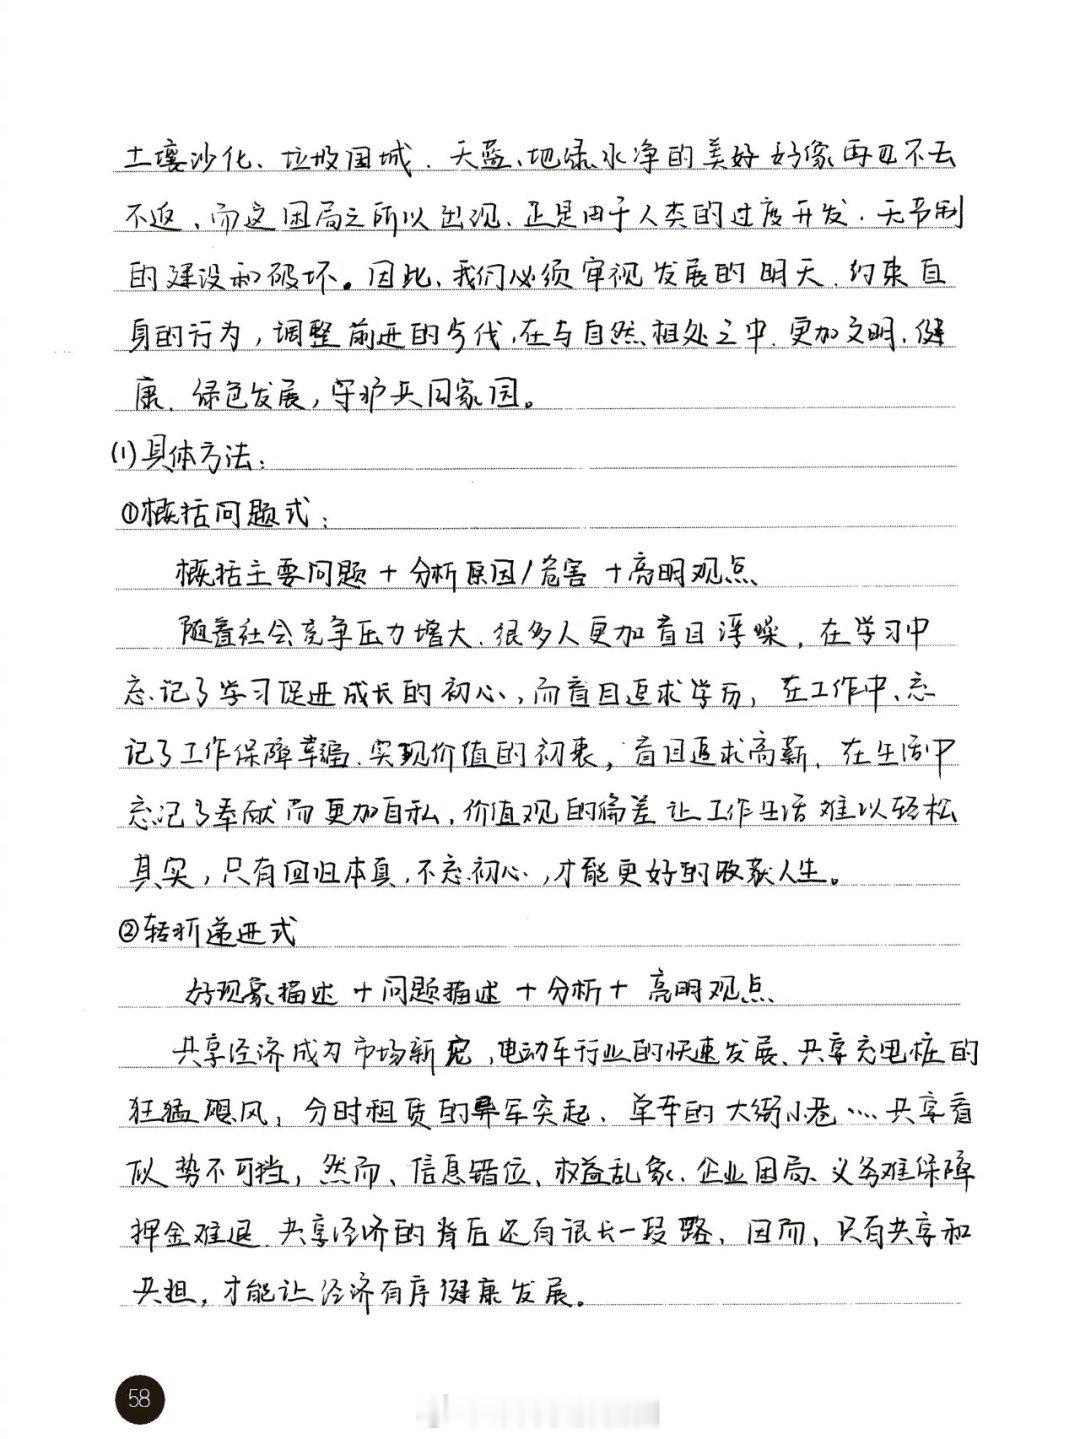 土壤沙化、垃圾围城、天蓝、地绿水净的美好好像再也不去
不返、而这困局之所以出现、正是由于人类的过度开发、无节制
的建设和破坏。因此、我们必须审视发展的明天、约束自
身的行为，调整前进的步伐，在与自然相处之中、更加文明、健
康、绿色发展，守护共同家园。
(1)具体方法：
①概括问题式：
概括主要问题+分析原因/危害+亮明观点
随着社会竞争压力增大、很多人更加盲目浮噪，在学习中
忘记了学习促进成长的初心，而盲目追求学历，在工作中、忘
记了工作保障幸福、实现价值的初衷，盲目追求高薪、在生活中
忘记了奉献而更加自私，价值观的偏差让工作生活难以轻松
其实，只有回归本真，不忘初心，才能更好的收获人生。
②转折递进式
好现象描述+问题描述+分析+亮明观点
共享经济成为市场新宠，电动车行业的快速发展、共享充电桩的
狂猛飓风，分时租赁的异军突起、单车的大街小巷……共享看
似势不可挡，然而、信息错位、权益乱象、企业困局、义务难保障
押金难退、共享经济的背后还有很长一段路、因而，只有共享和
共担，才能让经济有序健康发展。
58